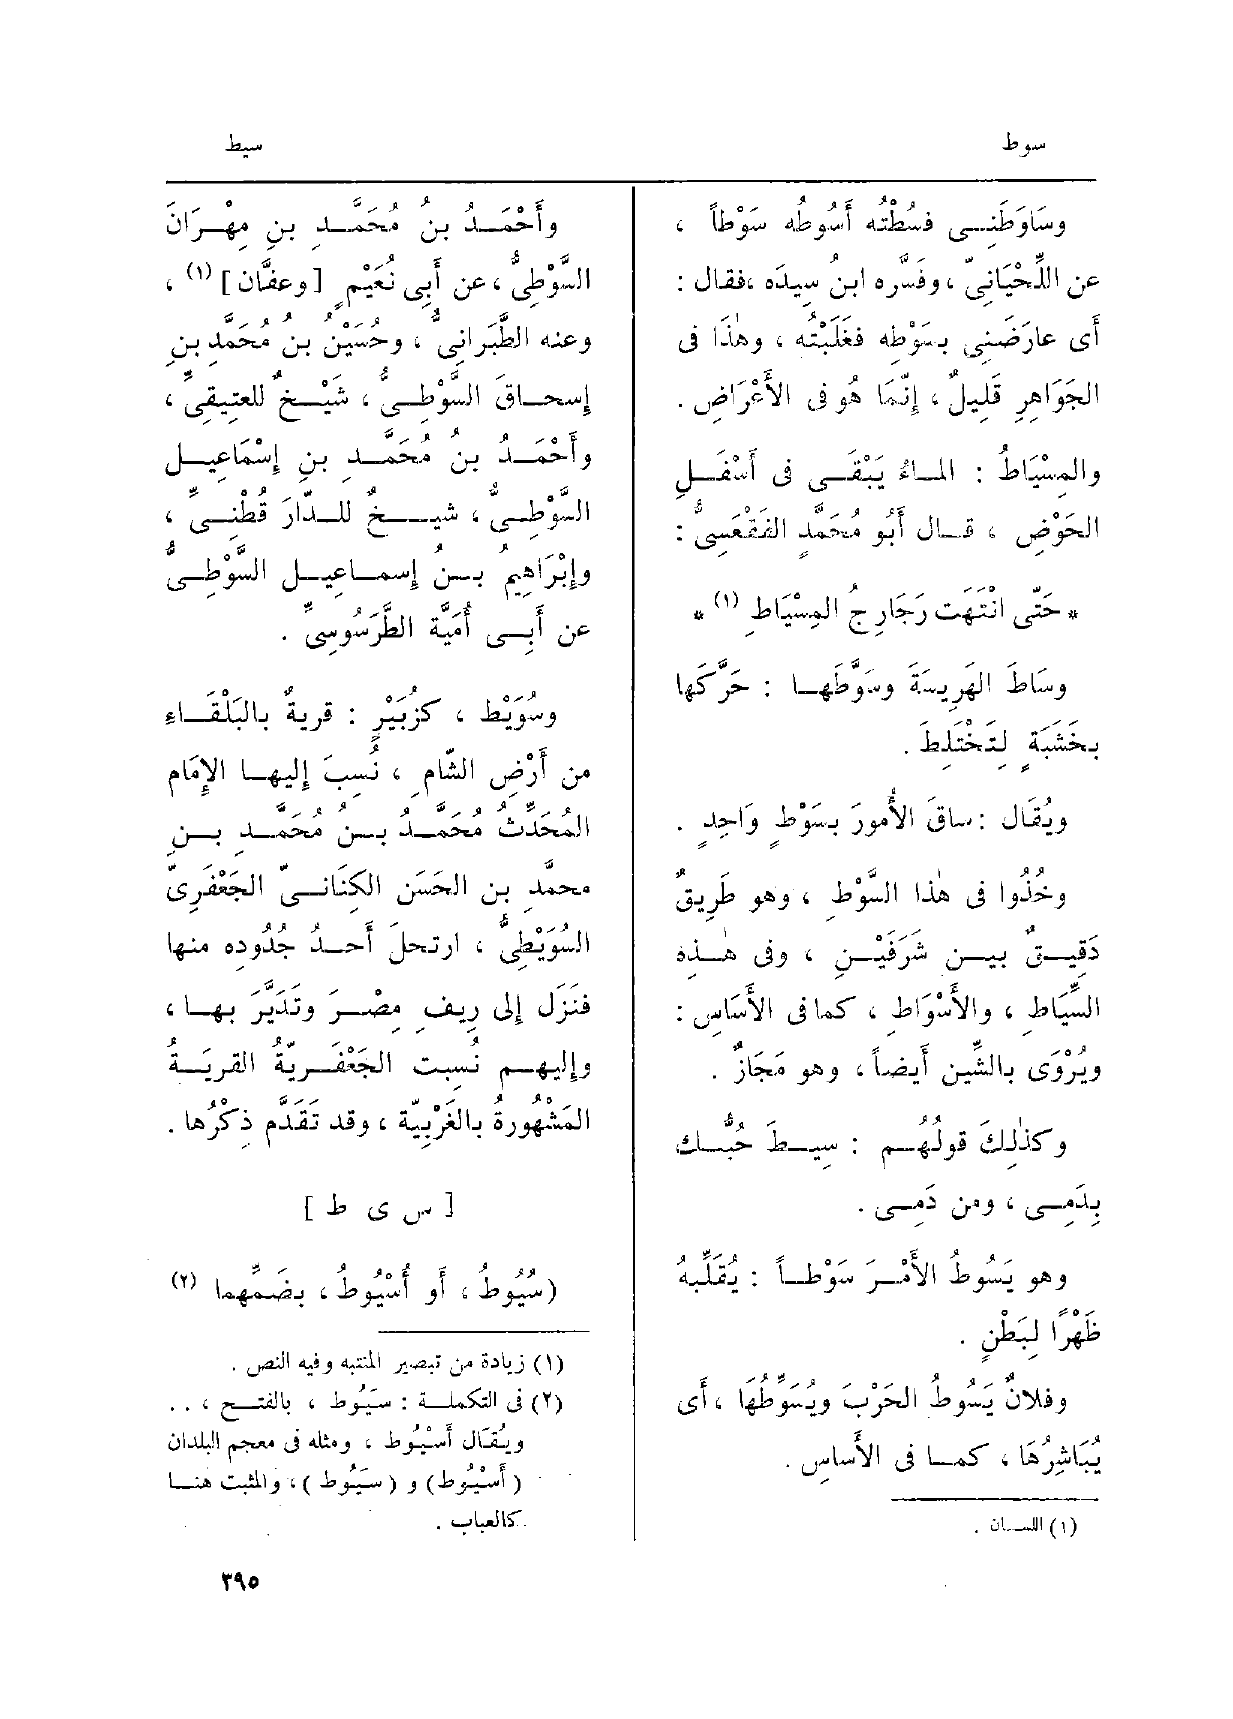 سوط
سيط
وسَاوَطَنِى فسُطْتُه أَسُوطُه سَوْطاً ،
عن اللِّحْيَانِىّ ، وفسَّره ابنُ سِيدَه ، فقال :
أَى عارَضَنِى بسَوْطِه فغَلَبْتُه ، وهٰذا فى
الجَوَاهِرِ قَلِيلٌ ، إِنَّمَا هُو فى الأَعْرَاضِ .
والمِسْيَاطُ : الماءُ يَبْقَى فى أَسْفَلِ
الحَوْضِ ، قال أَبُو مُحَمَّدٍ الفَقْعَسِىُّ :
* حَتّى انْتَهَت رَجَارِجُ المِسْيَاطِ (١) *
وسَاطَ الهَرِيسَةَ وسَوَّطَها : حَرَّكَها
بخَشَبَةٍ لِتَخْتَلِطَ .
ويُقَال : ساقَ الأُمورَ بسَوْطٍ وَاحِدٍ .
وخُذُوا فى هٰذا السَّوْطِ ، وهو طَرِيقٌ
دَقِيقٌ بين شَرَفَيْنِ ، وفى هٰذِه
السِّيَاطِ ، والأَسْوَاطِ ، كما فى الأَسَاسِ :
ويُرْوَى بالشِّين أَيضاً ، وهو مَجَازٌ .
وكذٰلِكَ قولُهُم : سِيطَ حُبُّك
بِدَمِى ، ومن دَمِى .
وهو يَسُوطُ الأَمْرَ سَوْطاً : يُقَلِّبُهُ
ظَهْرًا لِبَطْنٍ .
وفلانٌ يَسُوطُ الحَرْبَ ويُسَوِّطُهَا ، أَى
يُبَاشِرُهَا ، كما فى الأَساسِ .
(١) اللسان .
وأَحْمَدُ بنُ مُحَمَّدِ بنِ مِهْرَانَ
السَّوْطِىُّ ، عن أَبِى نُعَيْمٍ [وعفَّان] (١) ،
وعنه الطَّبَرانِىُّ ، وحُسَيْنُ بنُ مُحَمَّدِ بنِ
إِسحاقَ السَّوْطِىُّ ، شَيْخٌ للعتِيقِىِّ ،
وأَحْمَدُ بنُ مُحَمَّدِ بنِ إِسْمَاعِيلَ
السَّوْطِىُّ ، شيخٌ للدّارَ قُطْنِىِّ ،
وإِبْرَاهِيمُ بنُ إِسماعِيلَ السَّوْطِىُّ
عن أَبِى أُمَيَّةَ الطَّرَسُوسِىِّ .
وسُوَيْط ، كزُبَيْرٍ : قريةٌ بالبَلْقَاءِ
من أَرْضِ الشّامِ ، نُسِبَ إِليها الإِمَامُ
المُحَدِّثُ مُحَمَّدُ بنُ مُحَمَّدِ بنِ
محمَّد بن الحَسَن الكِنَانِىّ الجَعْفَرِىّ
السُوَيْطِىُّ ، ارتحلَ أَحدُ جُدُوده منها
فنَزَل إِلى رِيفِ مِصْرَ وتَدَيَّرَ بها ،
وإِليهم نُسِبت الجَعْفَرِيّةُ القريَةُ
المَشْهُورةُ بالغَرْبِيّة ، وقد تَقَدَّم ذِكْرُها .
[ س ى ط ]
(سُيُوطُ ، أَو أُسْيُوطُ ، بضَمِّهما (٢)
(١) زيادة من تبصير المنتبه وفيه النص .
(٢) فى التكملة : سَيُوط ، بالفتح ، . .
ويُقَال أَسْيُوط ، ومثله فى معجم البلدان
(أَسْيُوط) و (سَيُوط ) ، والمثبت هنا
كالعباب .
٣٩٥